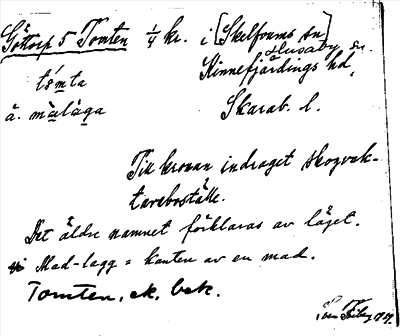 Göttorp 5 Tomten 1/4 kr. i [Skelfoums sn]
Husaby sn.
Kinnefjärdings hd,
tómta
Skarab. l.
å. màlàga
Till kronan indraget skogvak-
tareboställe.
Det äldre namnet förklaras av läget.
Mad-lagg = kanten av en mad.
Tomten, ek, bek.